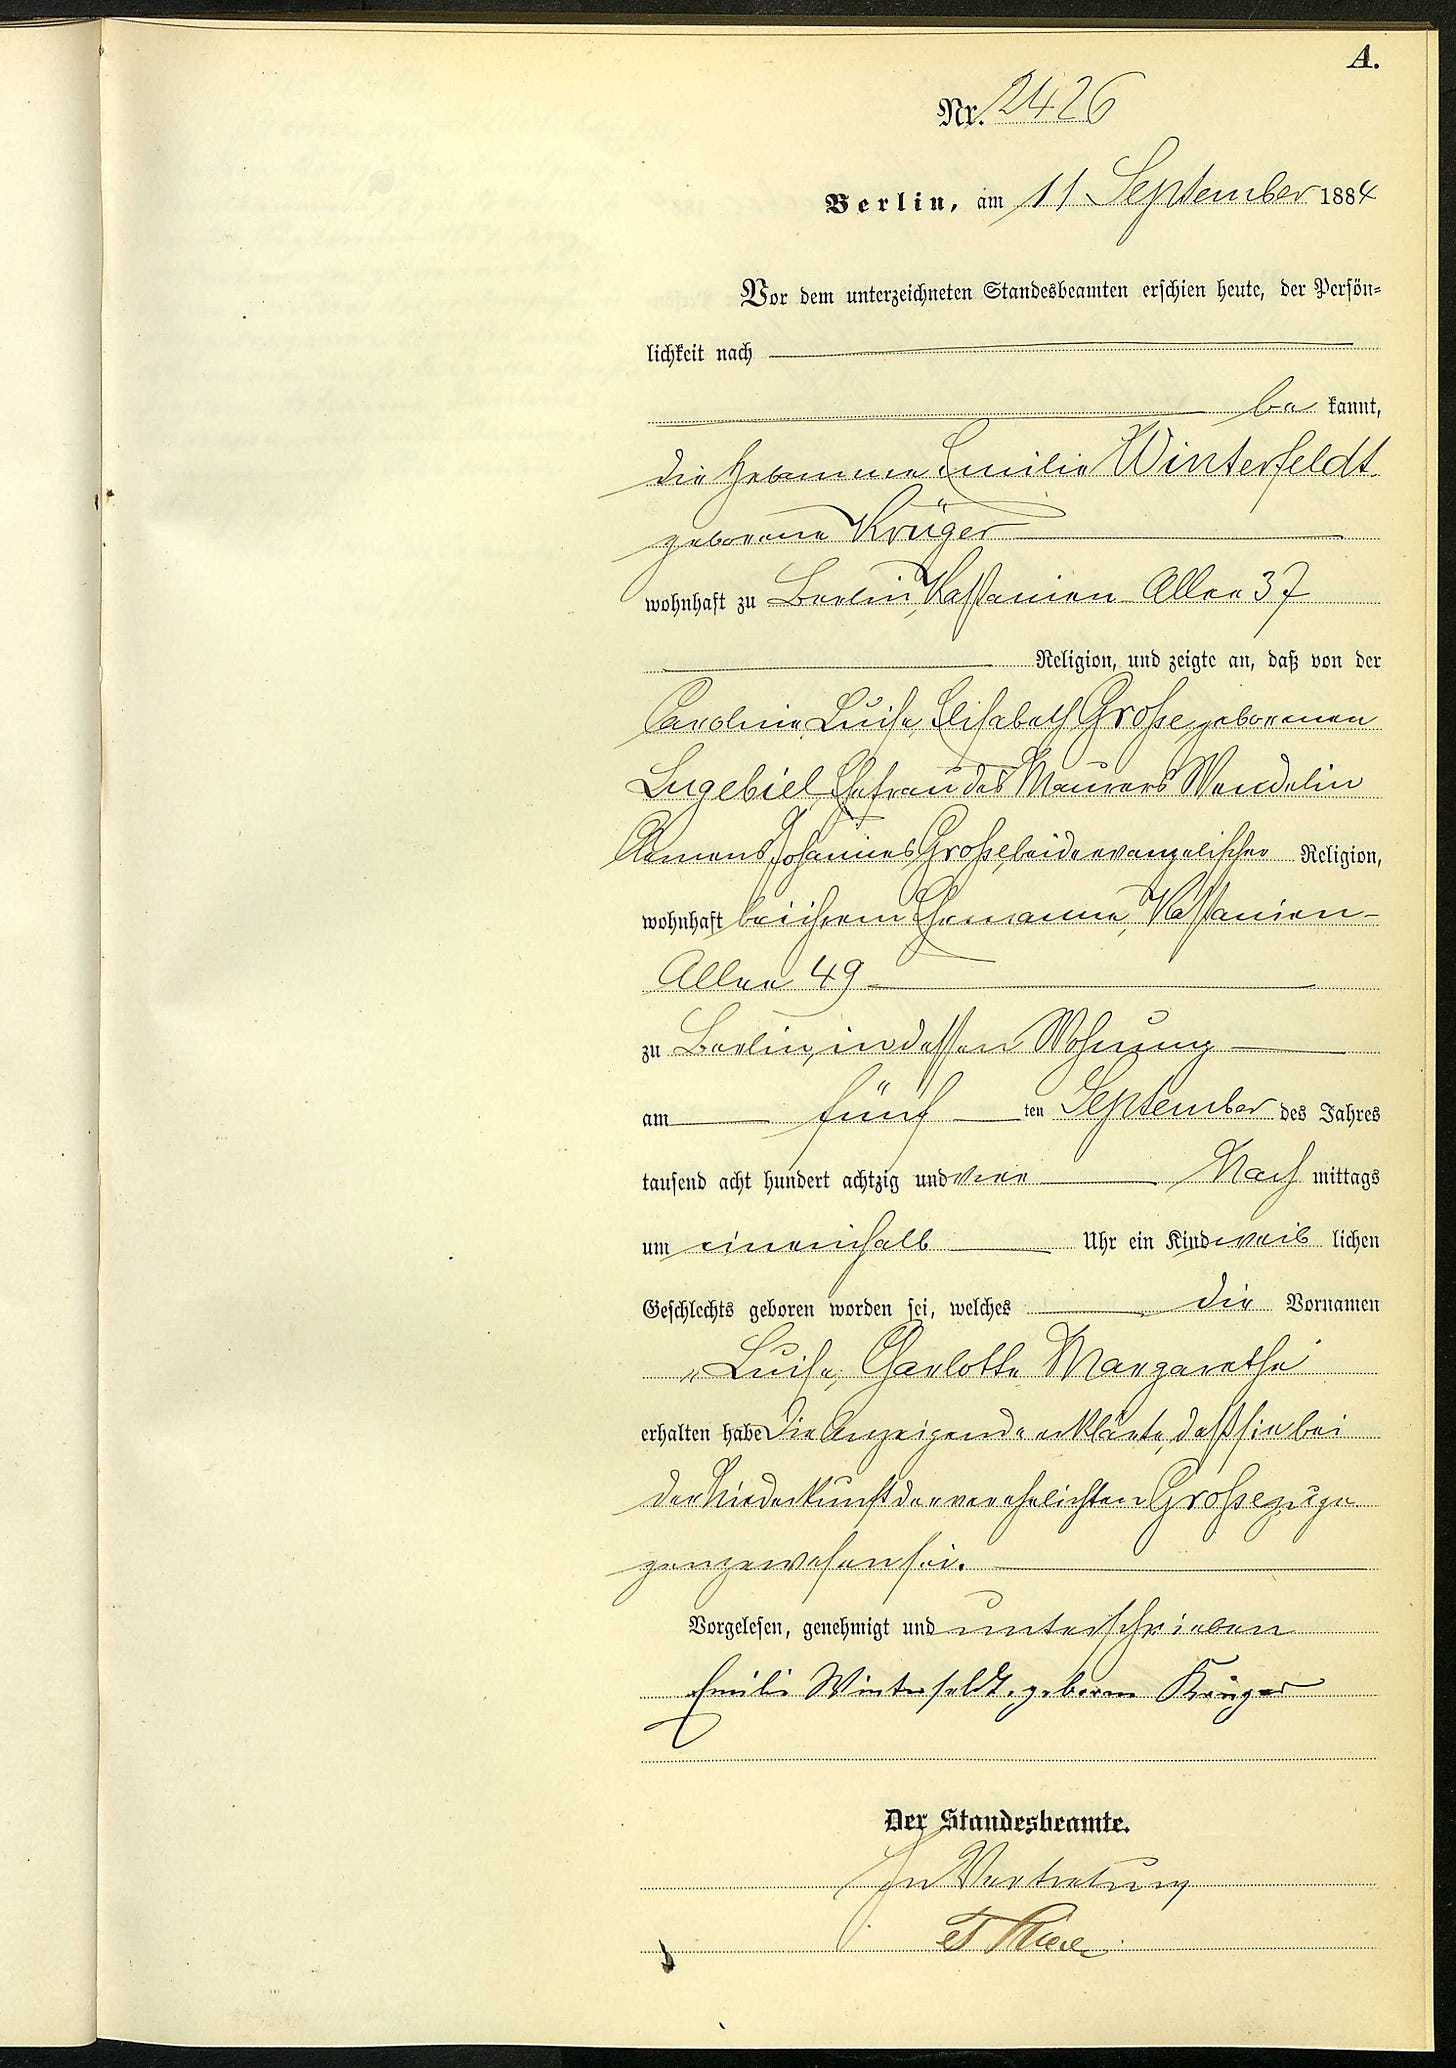 A.
Nr. 2426
Berlin, am 11 September 1884
Vor dem unterzeichneten Standesbeamten erschien heute, der Persön-
lichkeit nach
be kannt,
die Hebamme Emilie Winterfeldt
geborene Krüger
wohnhaft zu Berlin, Kastanien Allee 37
Religion, und zeigte an, daß von der
Caroline Luise Elisabeth Große, geborenen
Lugebiel, Ehefrau des Maurers Wendelin
Clemens Johannes Große, beide evangelischer Religion,
wohnhaft bei ihrem Ehemanne, Kastanien-
Allee 49
zu Berlin, in dessen Wohnung
am fünf ten September des Jahres
tausend acht hundert achtzig und vier Nach mittags
um eineinhalb Uhr ein Kind weib lichen
Geschlechts geboren worden sei, welches die Vornamen
Luise, Charlotte Margarethe
erhalten habe Die Anzeigende erklärte, daß sie bei
der Niederkunft der verehelichten Große zuge
gen gewesen sei.
Vorgelesen, genehmigt und unterschrieben
Emilie Winterfeldt. geborne Krüger
Der Standesbeamte.
In Vertretung